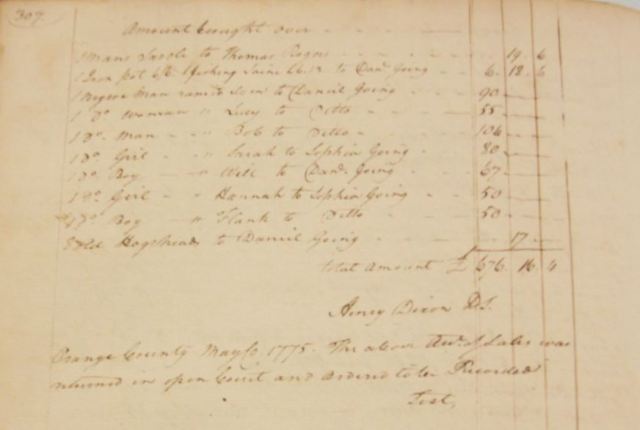 307.
Amount brought over
1 Mans Saddle to Thomas 19. 6
1 Iron pot to Danl. Going 6. 12. 6
1 Negroe Man named to Daniel Going 90
1 Do. Woman " Lucy to Ditto 55
1 Do. Man " Bob to Ditto 104
1 Do. Girl " Sarah to Sophia Going 80
1 Do. Boy " Will to Danl. Going 67
1 Do. Girl " Hannah to Sophia Going 50
1 Do. Boy " Frank to Ditto 50
Old Hogsheads to Daniel Going 17
total Amount £ 16. 4
Henry Dixon D.S.
Orange County May Ct. 1775. The above of Sales was
returned in open Court and ordered to be Recorded
Test,